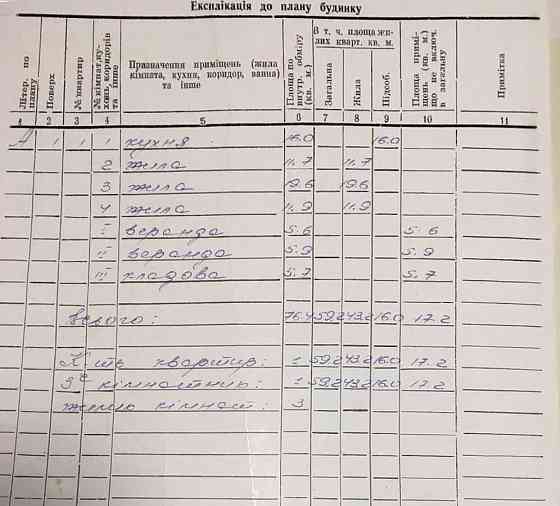 Експлікація до плану будинку
Літер. по плану | Поверх | № квартир | № кімнат, кухонь, коридорів та інше | Призначення приміщень (жила кімната, кухня, коридор, ванна) та інше | Площа по внутр. обміру (кв. м.) | В т. ч. площа жилих кварт. кв. м. | Загальна | Жила | Підсоб. | Площа приміщень (кв. м.) що не включ. в загальну | Примітка
1 2 3 4 5 6 7 8 9 10 11
А 1 1 1 кухня 16.0 16.0
2 жила 11.7 11.7
3 жила 19.6 19.6
4 жила 11.9 11.9
I веранда 5.6 5.6
II веранда 5.9 5.9
III кладова 5.7 5.7
Всього: 76.4 59.2 43.2 16.0 17.2
К-ть квартир: 1 59.2 43.2 16.0 17.2
3х кімнатних: 1 59.2 43.2 16.0 17.2
жилих кімнат: 3